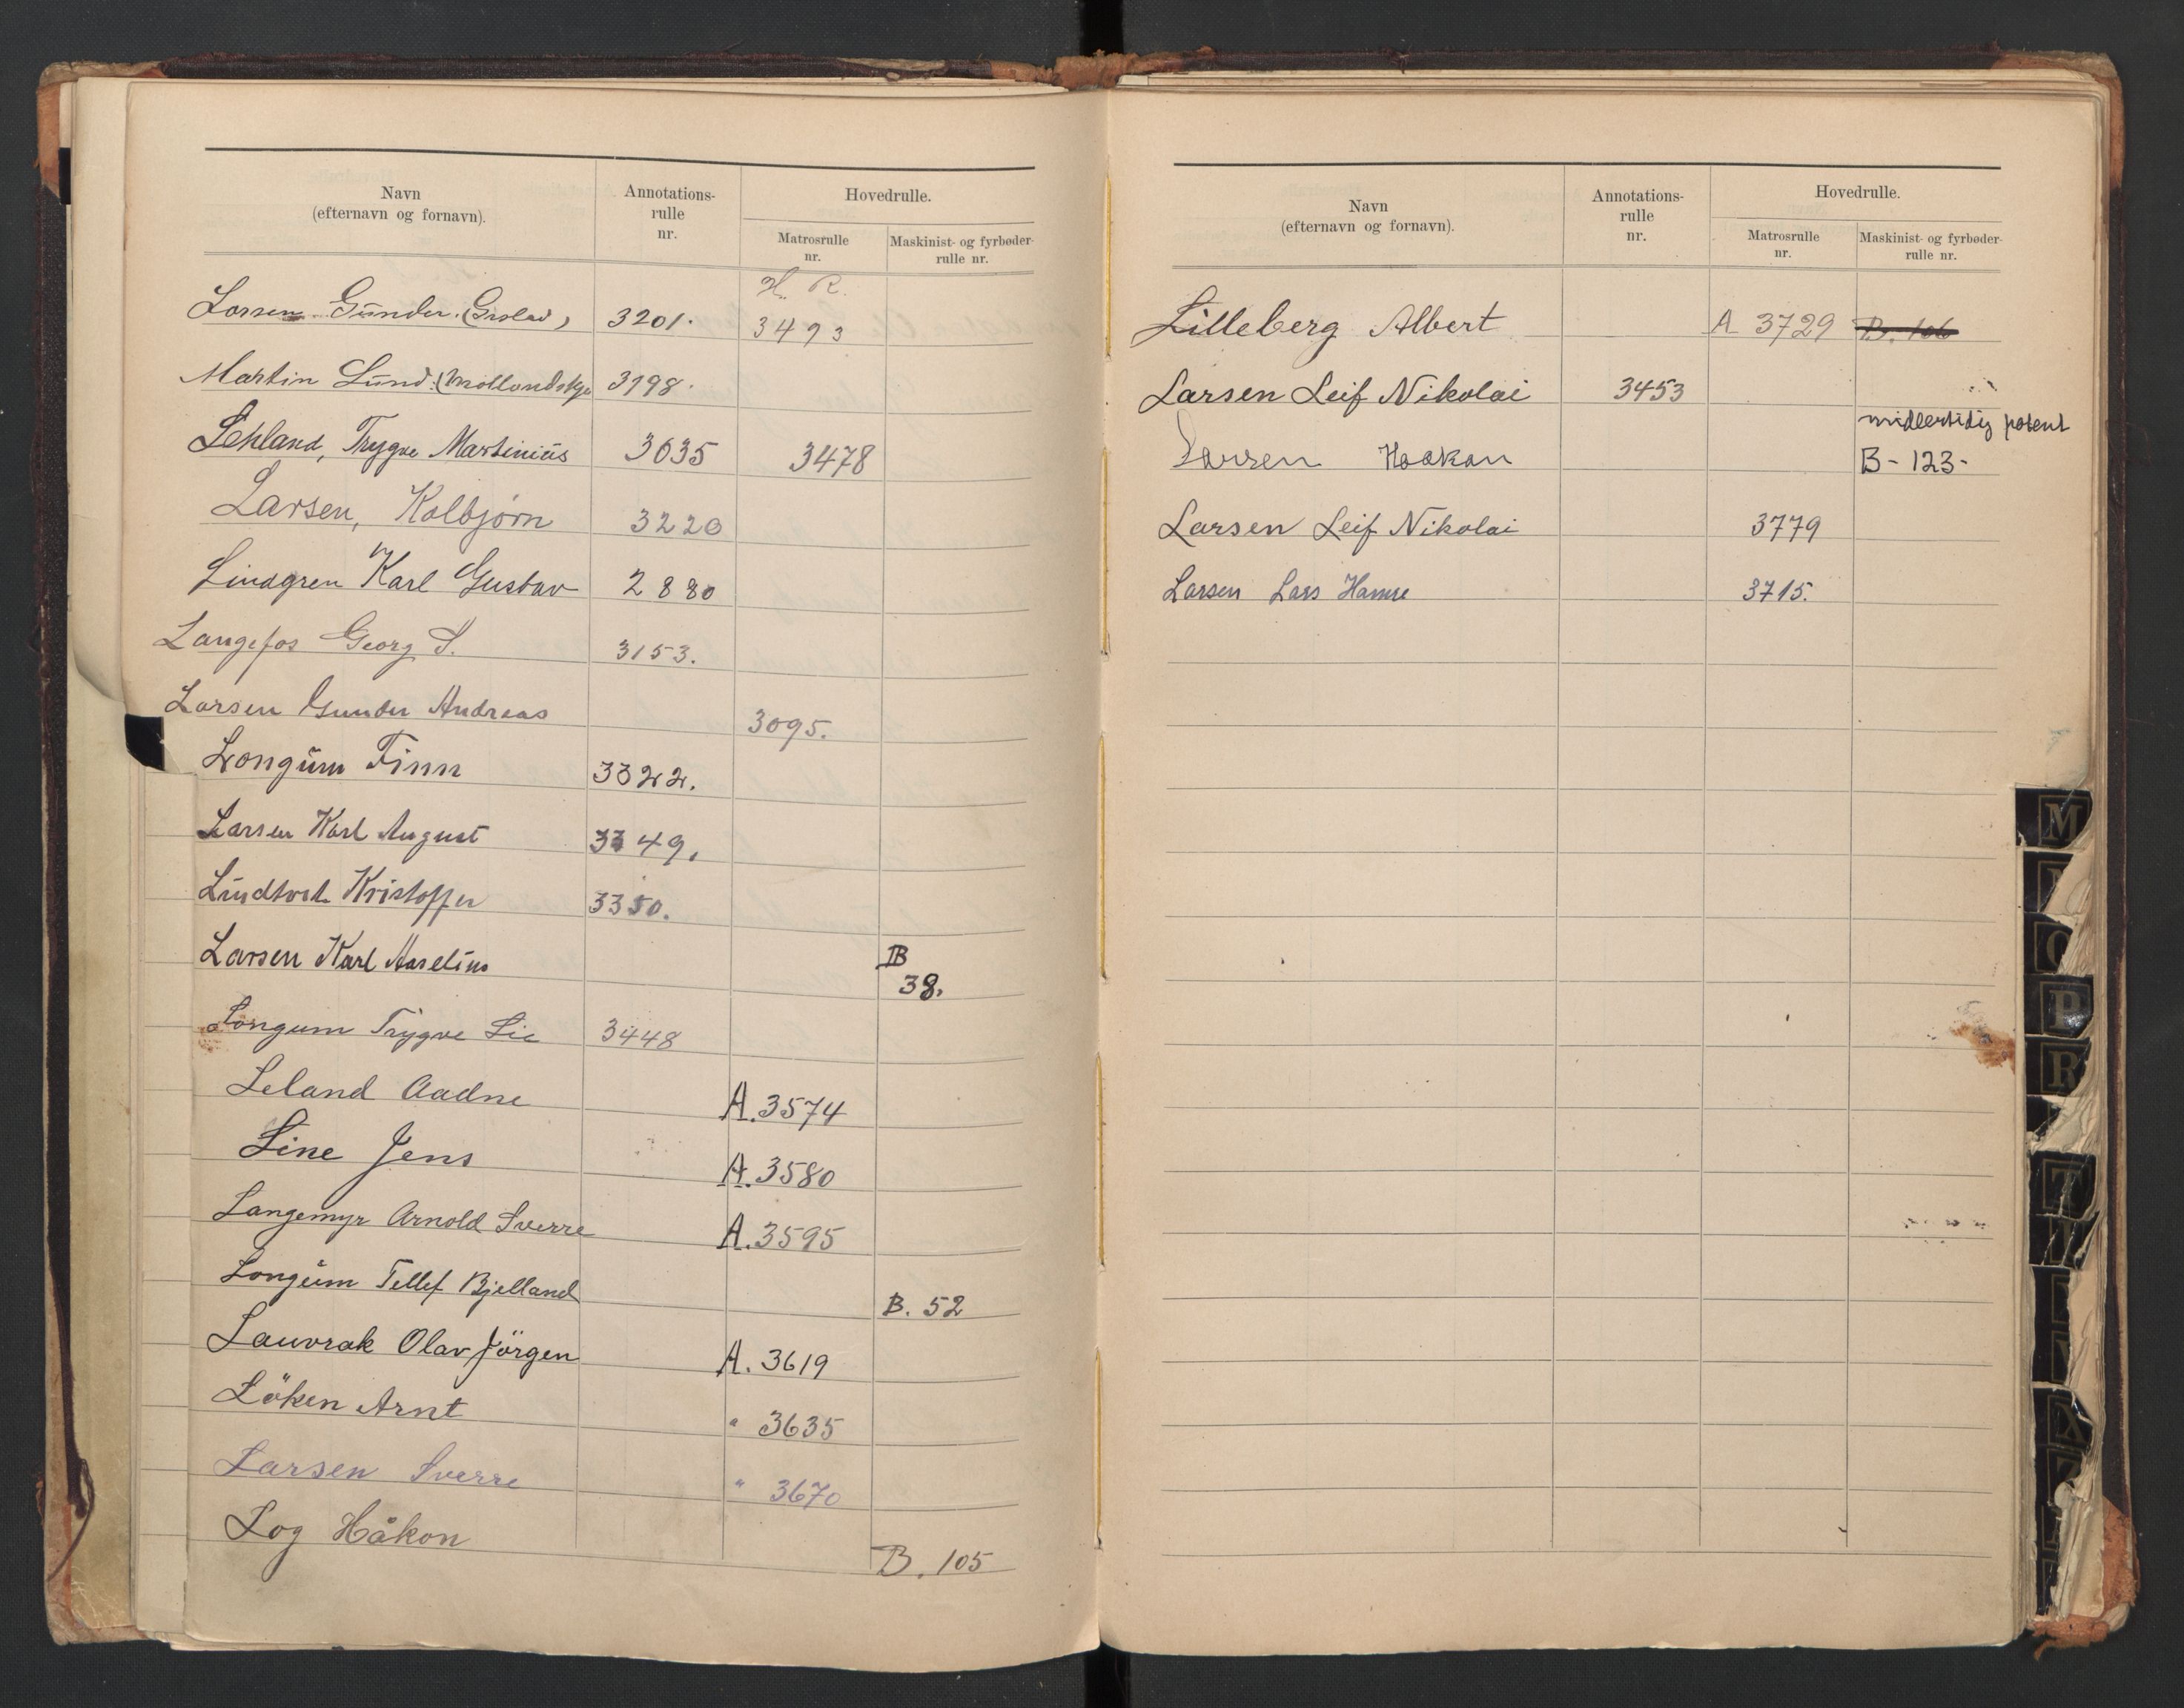 Navn
(efternavn og fornavn).
Annotations-
rulle
nr.
Hovedrulle.
Matrosrulle
nr.
Maskinist- og fyrbøder-
rulle nr.
H. R.
Larsen Gunder. 3201. 3493
Martin Lund. 3198.
Lehland, Trygve Martinius 3635 3478
Larsen, Kolbjørn 3220
Lindgren Karl Gustav 2880
Langefos Georg S. 3153.
Larsen Gunder Andreas 3095.
Longum Finn 3322.
Larsen Karl August 3349.
Lindtveit Kristoffer 3350.
Larsen Karl Aaselius B
38.
Longum Trygve Lie 3448
Leland Aadne A. 3574
Line Jens A. 3580
Langemyr Arnold Sverre A. 3595
Longum Tellef Bjelland B. 52
Lauvrak Olav Jörgen A. 3619
Löken Arnt " 3635
Larsen Sverre " 3670
Log Håkon B. 105
Navn
(efternavn og fornavn).
Annotations-
rulle
nr.
Hovedrulle.
Matrosrulle
nr.
Maskinist- og fyrbøder-
rulle nr.
Lilleberg Albert A 3729 B. 106
Larsen Leif Nikolai 3453
midlertidig patent
Larsen Haakon B-123-
Larsen Leif Nikolai 3779
Larsen Lars Hamre 3715.
M
N
O
P
R
T